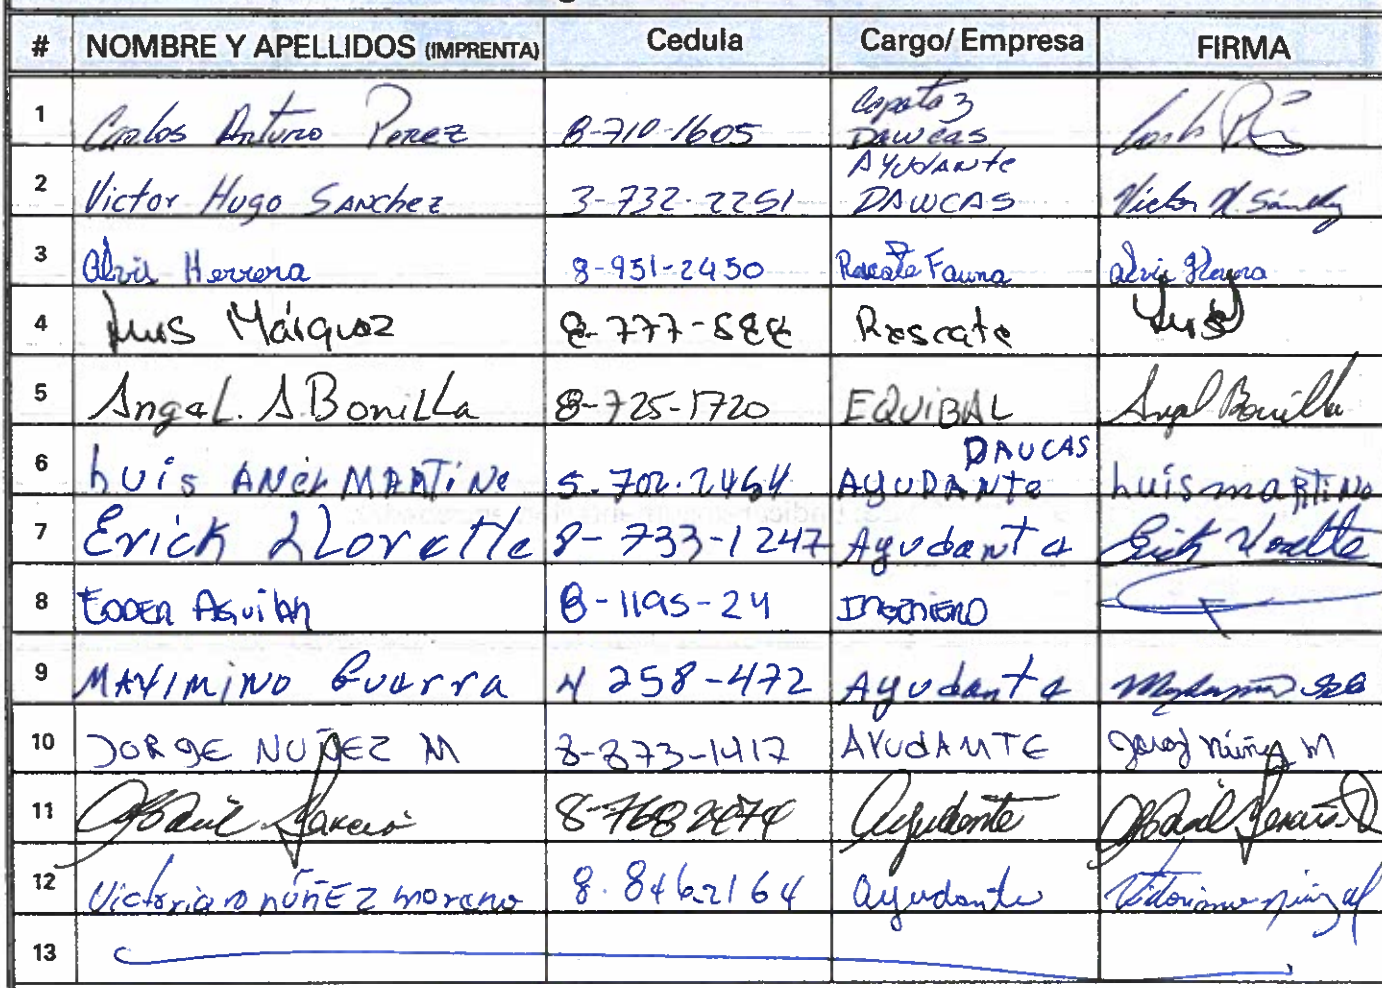 # NOMBRE Y APELLIDOS (IMPRENTA) Cedula Cargo/Empresa FIRMA
1 Carlos Arturo Perez 8-710-1605 Capataz DAWCAS Carlos P
2 Victor Hugo Sanchez 3-732-2251 AYUDANTE DAWCAS Victor H. Sánchez
3 Alvis Herrera 8-951-2450 Rescate Fauna Alvis Herrera
4 Luis Márquez 8-777-588 Rescate Luis
5 Angel. A Bonilla 8-725-1720 EQUIBAL Angel Bonilla
6 Luis ANEL MARTiNe 5-702-2464 AYUDANTe DAUCAS Luis maRTiNe
7 Erick LLorette 8-733-1247 Ayudante Erick Llorette
8 EDDER Aguilar 8-1195-24 INGENIERO
9 MAXIMINO Guerra 4 258-472 Ayudante
10 JORGE NUÑEZ M 8-873-1417 AYUDANTE Jorge Núñez M
11 Abdiel Garcia 8-768 2474 Ayudante Abdiel Garcia
12 Victoriano núñEZ moreno 8-8462164 ayudante Victoriano
13